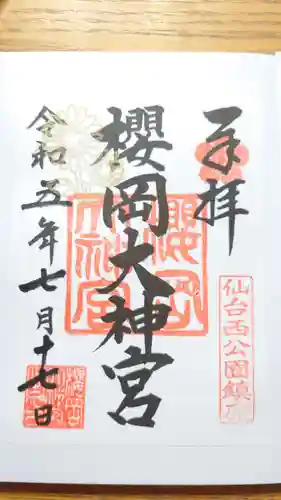 奉拝
仙台西公園鎮座
櫻岡大神宮
令和五年七月十七日